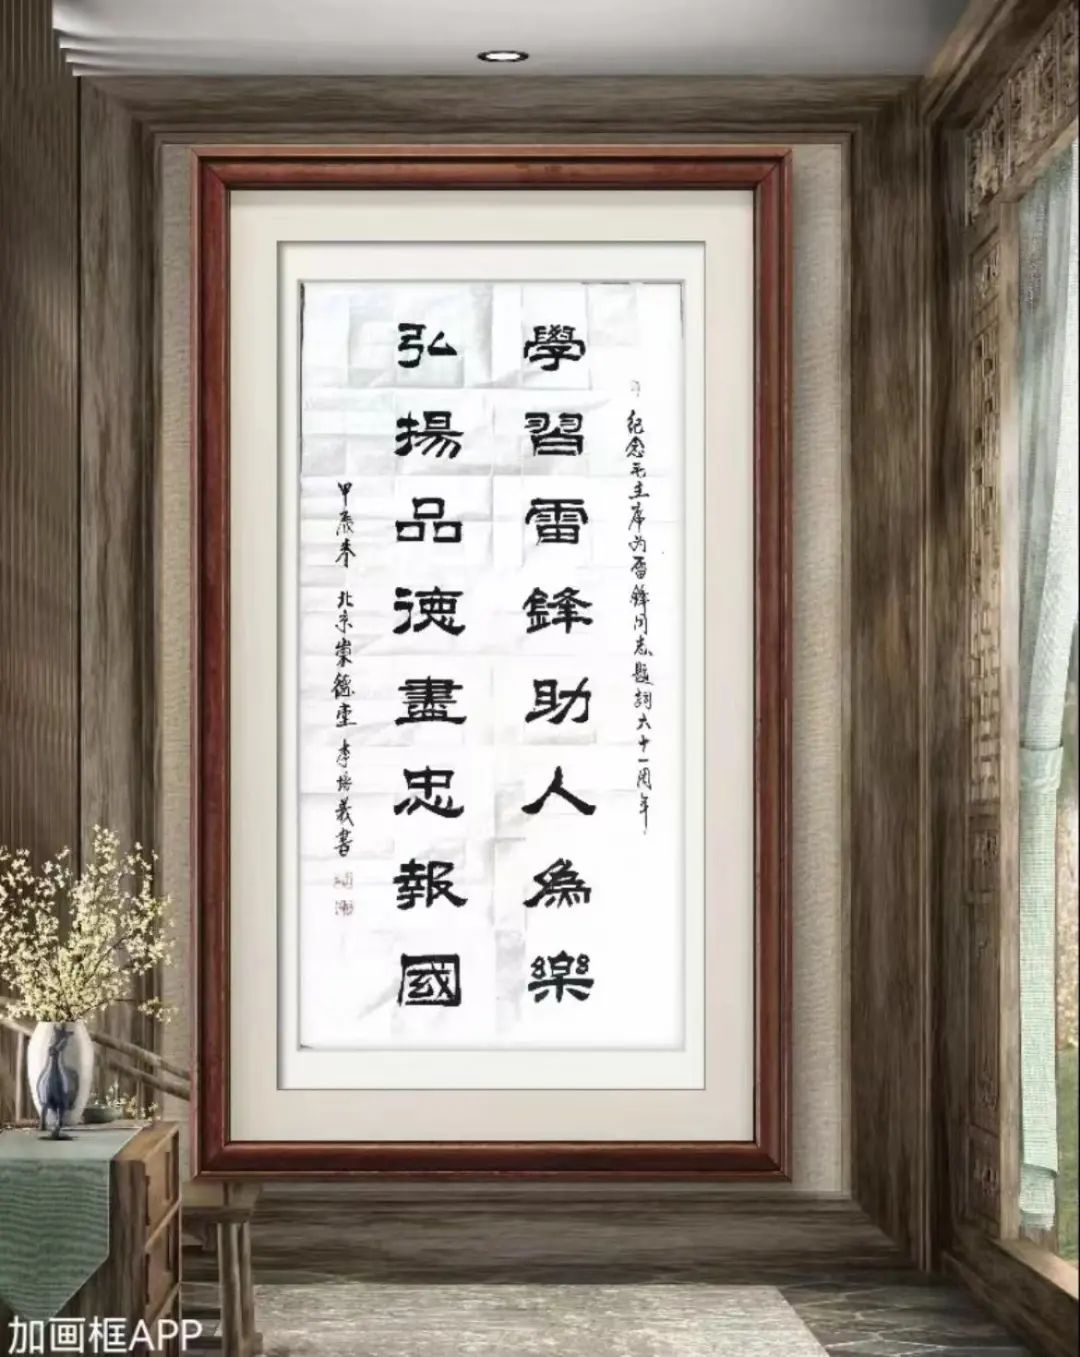 紀念毛主席为雷鋒同志題詞六十一周年
學習雷鋒助人為樂
弘揚品德盡忠報國
甲辰春 北京崇德堂 李培義書
加画框APP